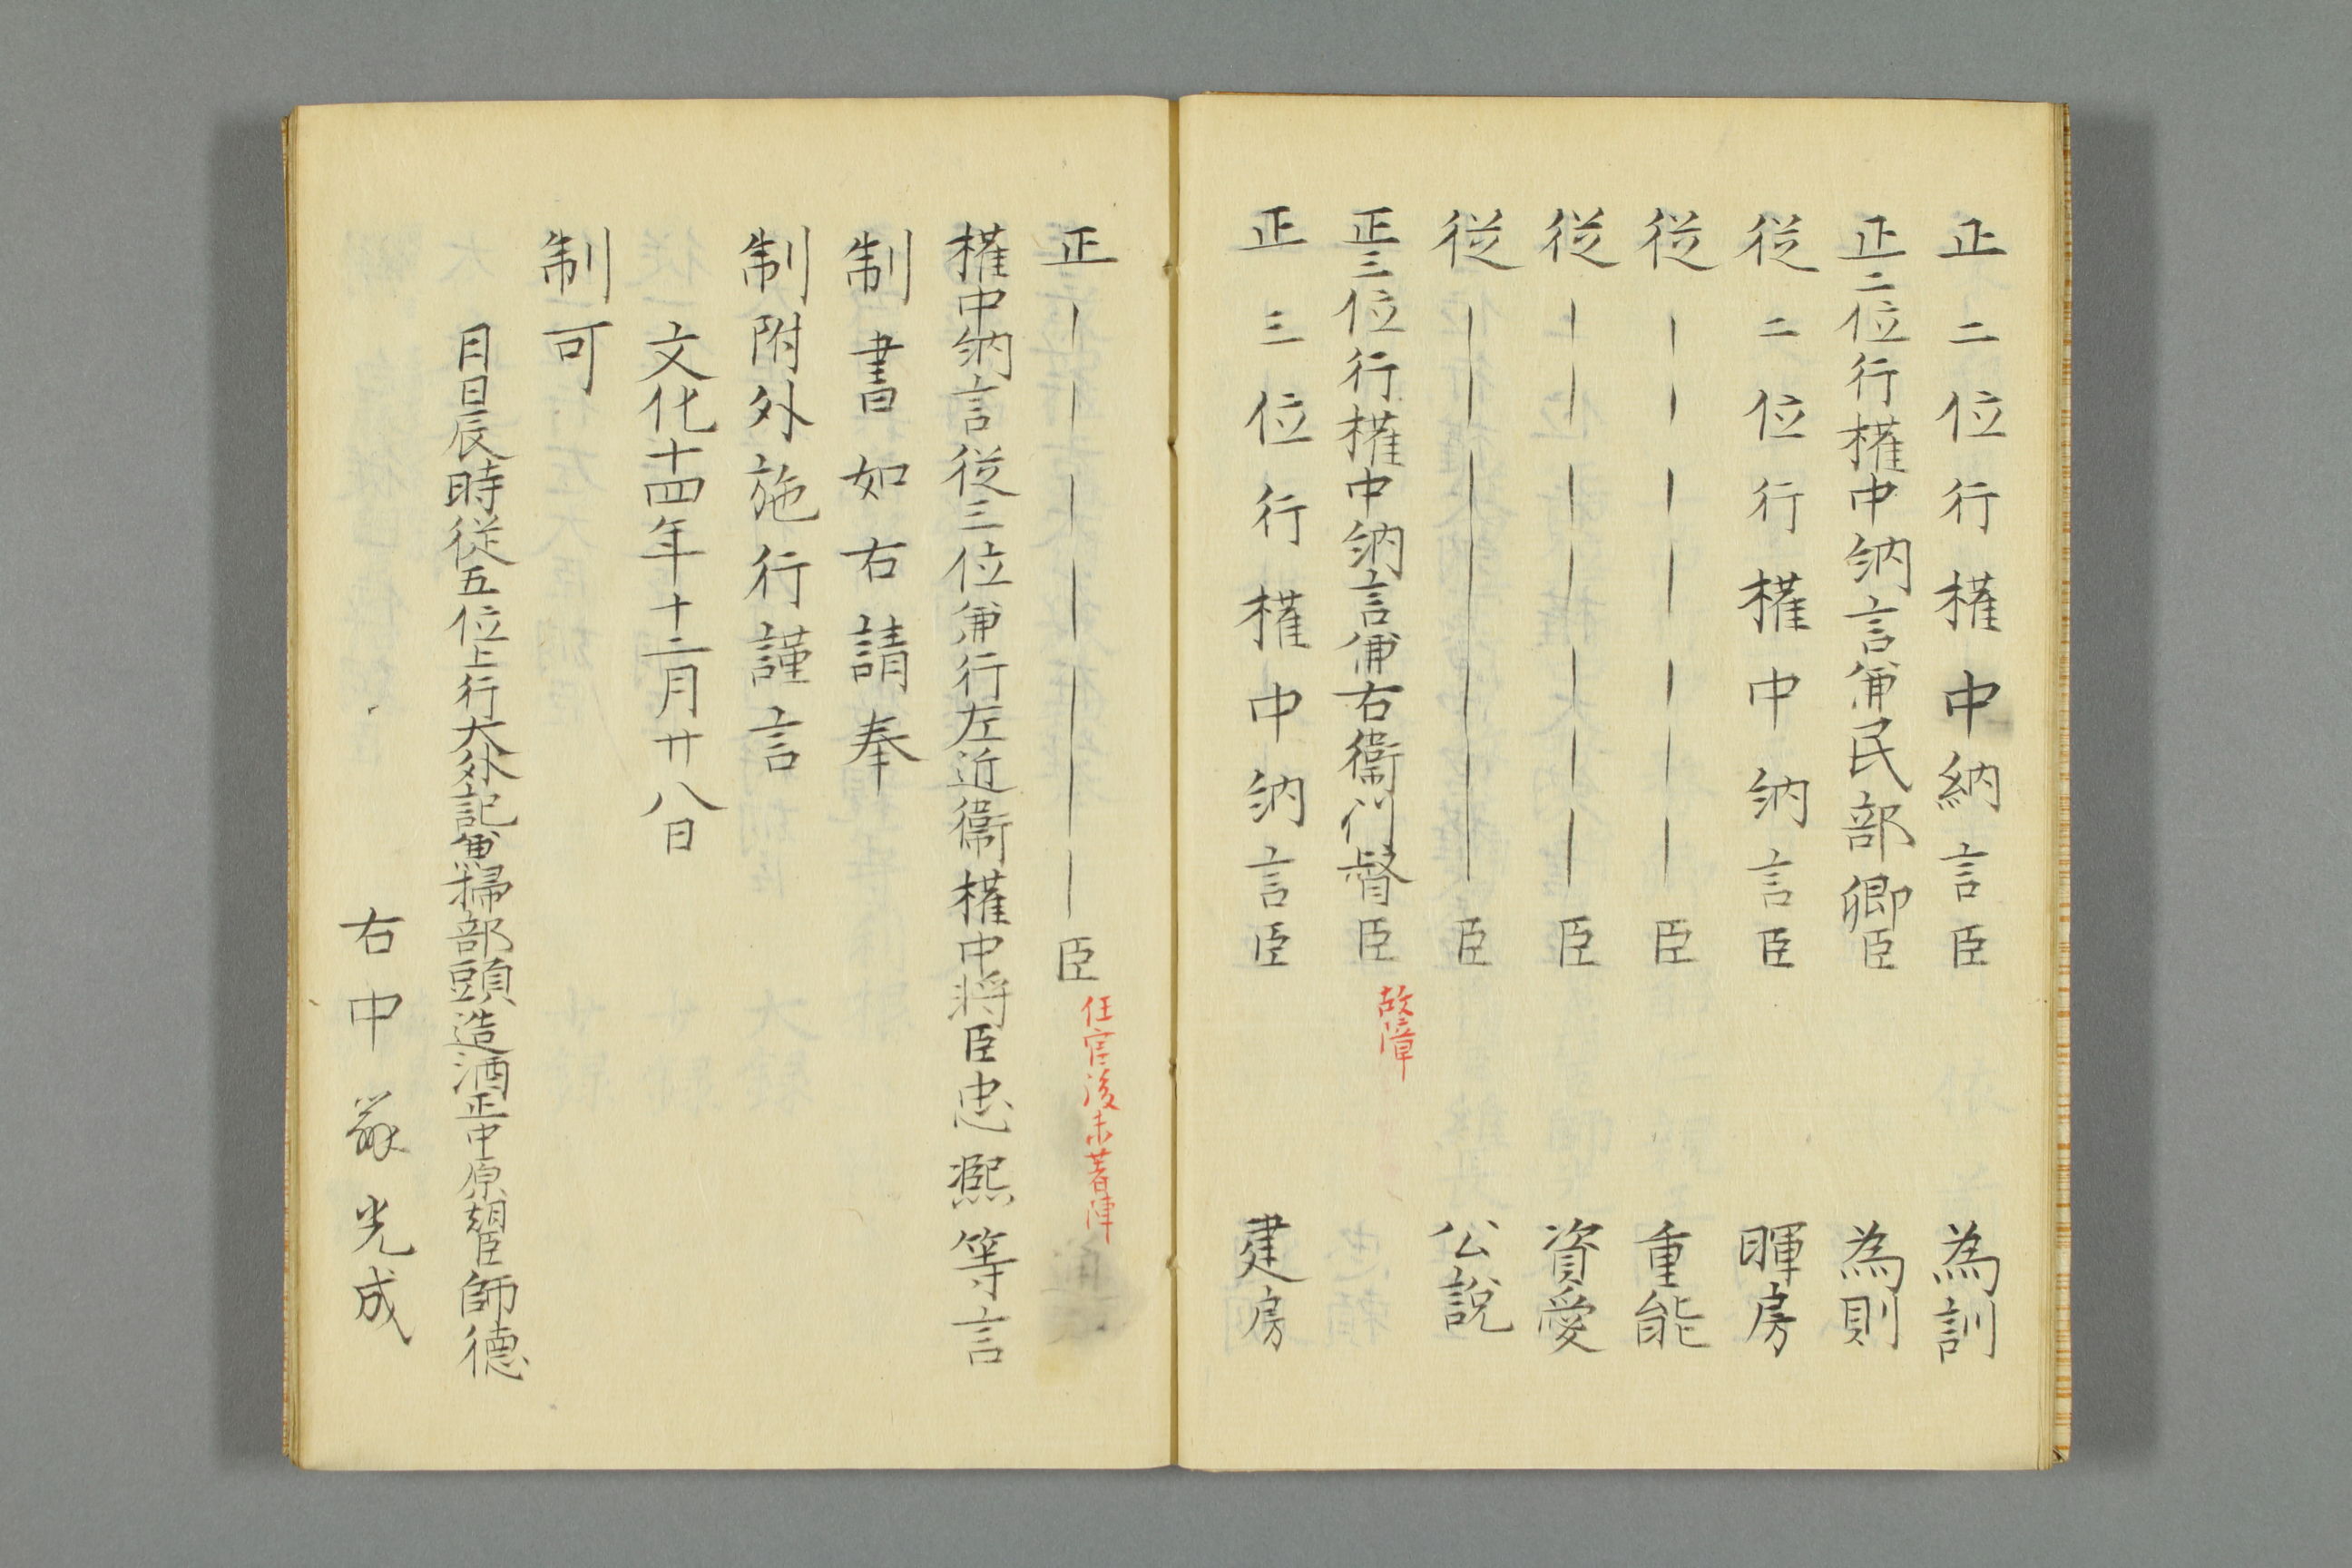 正二位行権中納言臣 為訓
正二位行権中納言兼民部卿臣 為則
従二位行権中納言臣 暉房
従――――――臣 重能
従――――――臣 資愛
従――――――臣 公説
正三位行権中納言兼右衛門督臣 故障
正三位行権中納言臣 建房
正――――――臣 任官後未著陣
権中納言従三位兼行左近衛権中将臣忠熈等言
制書如右請奉
制附外施行謹言
文化十四年十二月廿八日
制可
月日辰時従五位上行大外記兼掃部頭造酒正中原朝臣師徳
右中弁光成